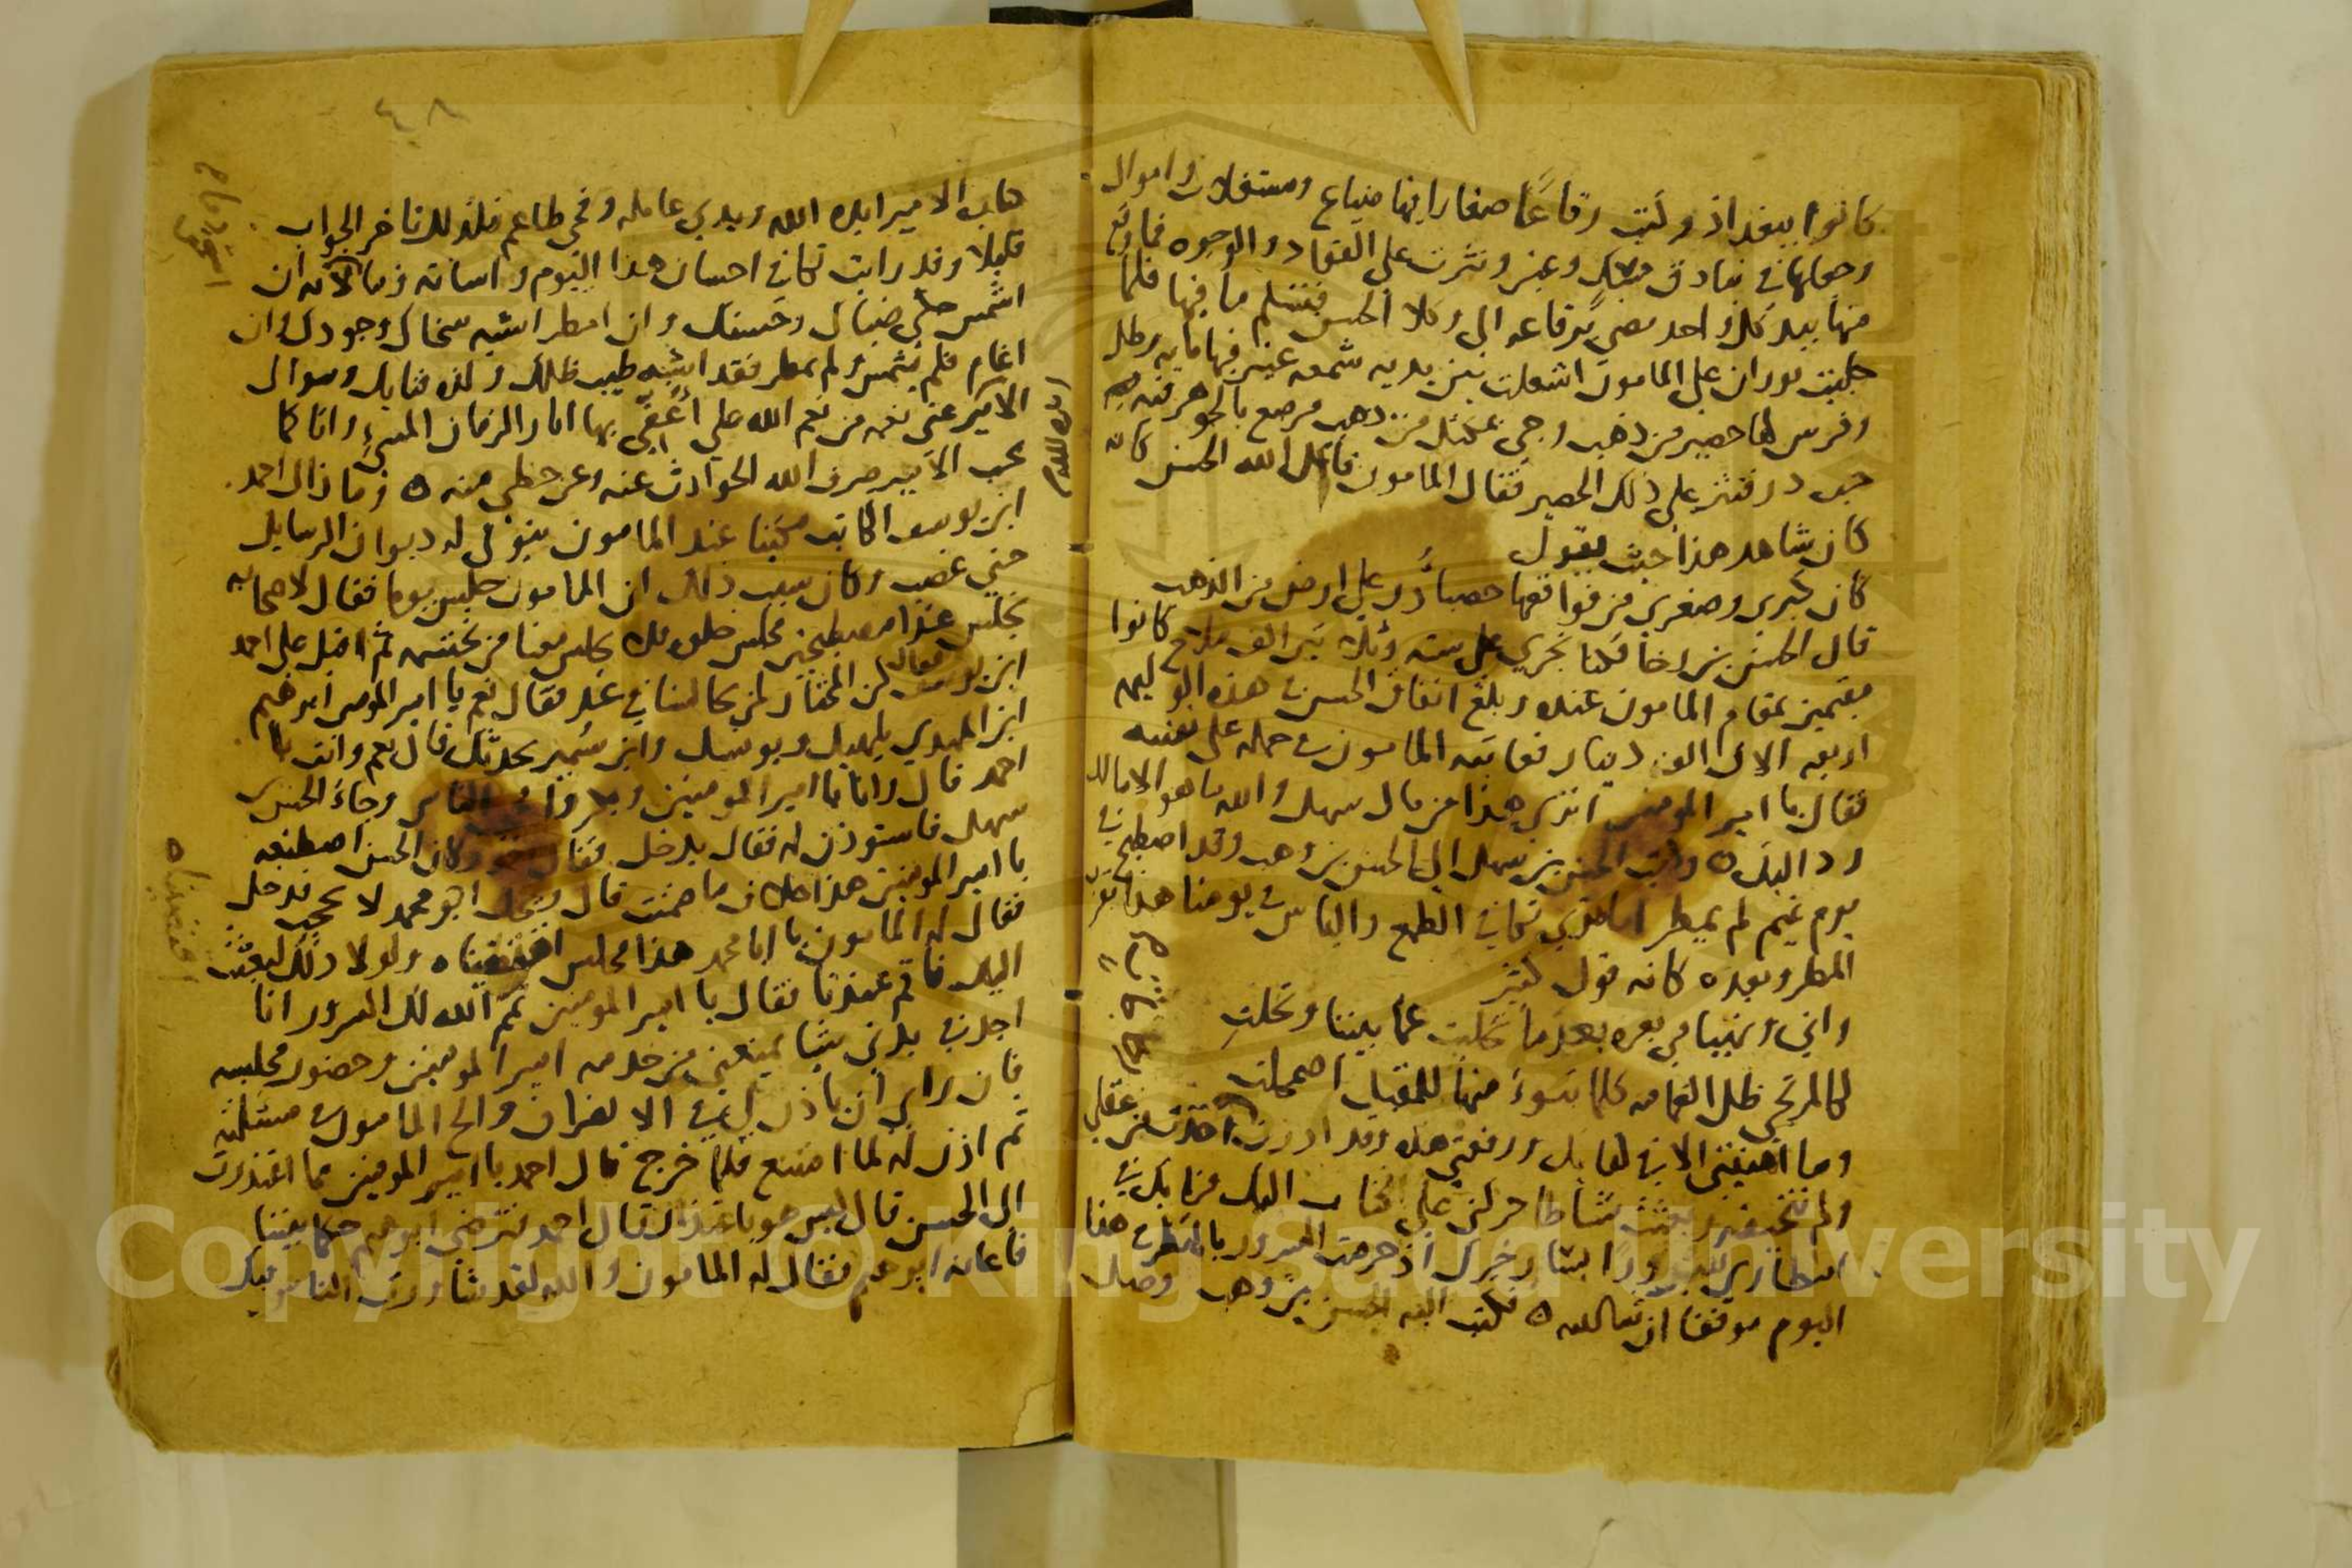 كانوا ببغداذ وكتب رقاعا صغارا فيها ضياع ومستغلات واموال
وجعلها في بنادق مسك وعنبر ونثرت على القواد والوجوه فما وقع
منها بيد كل واحد مضى برقاعه الى وكلا الحسن فتسلم ما فيها فلما
جليت بوران على المامون اشعلت بين يديه شمعه عنبر فيها مايه رطل
وفرش لها حصير من ذهب وجي بمكتل من ذهب مرصع بالجوهر فيه
حب در فنثر على ذلك الحصير فقال المامون قاتل الله الحسن كانه
كان شاهد هذا حيث يقول
كان كبرى وصغرى من فواقعها حصباء در على ارض من الذهب
قال الحسن بن رجا فكنا نجري على سته وثلثين الف ملاح كانوا
مقيمين بمقام المامون عنده وبلغ انفاق الحسن في هذه الوليمه
اربعه الاف الف دينار فعاتبه المامون في حمله على نفسه
فقال يا امير المومنين اترى هذا من مال سهل والله ما هو الا مالك
رد اليك ٥ وكتب الحسن بن سهل الى الحسن بن وهب وقد اصطبح في
يوم غيم لم يمطر اما ترى تكافي الطمع والياس في يومنا هذا بقرب
المطر وبعده كانه قول كثير
واني وتهيامي بعزه بعدما تخليت عما بيننا وتخلت
لكالمرتجي ظل الغمامه كلما تبوء منها للمقيل اضمحلت
وما امنيتي الا في لقايك ورقعتي هذه وقد ادرت اخذت من عقلي
ولم تتحيفه وبعثت نشاطا حركني على الكتاب اليك فرايك في
امطاري سرورا بسار خبرك اذ حرمت السرور بالمطر في هذا
اليوم موفقا ان شا الله ٥ فكتب اليه الحسن بن وهب وصل
٤٨
كتاب الامير ايده الله ويدي عامله وفمي طاعم فلذلك تاخر الجواب
قليلا وقد رايت تكافي احسان هذا اليوم واساته وما لانه ان
اشمس حكى ضياك وحسنك وان امطر اشبه سخاك وجودك وان
اغام فلم يشمس ولم يمطر فقد اشبه طيب ظلك ولذه فنايك وسوال
الامير عني نعمه من نعم الله علي اعفي بها اثار الزمان المسيء وانا كما
يحب الامير صرف الله الحوادث عنه وعن حظي منه ٥ وما زال احمد
ابن يوسف الكاتب مكينا عند المامون يتولى له ديوان الرسايل
حتى غضب وكان سبب ذلك ان المامون جلس يوما فقال لاصحابه
نجلس غدا مصطبحين مجلس خلوه فلا يجلس معنا من نحتشمه ثم اقبل على احمد
ابن يوسف فقال كن المختار لمن يجالسنا في غد فقال نعم يا امير المومنين ابرهيم
ابن المهدي يلهيك ويونسك وابن سمير يحدثك قال نعم وانت يا
احمد قال وانا يا امير المومنين الناس وجاء الحسن بن
سهل فاستوذن له فقال يدخل فقال وكان الحسن اصطنعه
يا امير المومنين هذا خلاف ما ضمنت قال ابو محمد لا يحجب فدخل
فقال له المامون يا ابا محمد هذا مجلس اقتضبناه ولولا ذلك لبعثت
اليك فاقم عندنا فقال يا امير المومنين تمم الله لك السرور انا
اجد في بدني شيا يمنعني من خدمه امير المومنين وحضور مجلسه
فان راى ان ياذن لي في الانصراف والح المامون في مسئلته
ثم اذن له لما امتنع فلما خرج قال احمد يا امير المومنين مما اعتذرت
الى الحسن قال ليس هو باعتذار فقال احمد نترضى ابرهيم حكما بيننا
فاعانه ابرهيم فقال له المامون والله لقد شاورت الناس فيك
اقتضبناه
Copyright © King Saud University